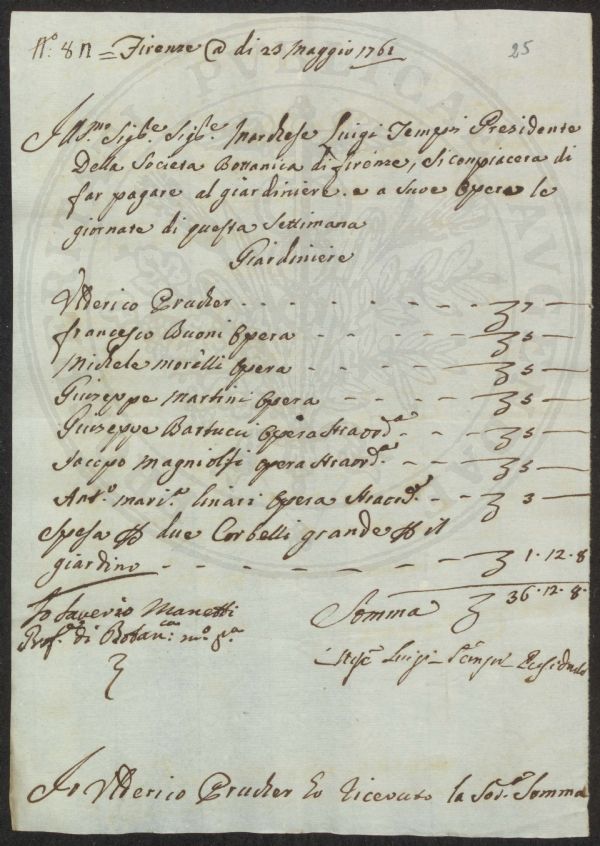 N.º 8 n = Firenze @ di 23 Maggio 1761
25
Ill.mo Sig.re Sig.re Marchese Luigi Tempi Presidente
Della Societa Bottanica di firenze, si conpiacera di
far pagare al giardiniere. e a Sue Opera le
giornate di questa Settimana
Giardiniere
Ulderico Prucher - - - - - - - - 7 —
francesco Buoni Opera - - - - - 5 —
Michele morelli Opera - - - - - 5 —
Giuseppe Martini Opera - - - - 5 —
Giuseppe Bartucci Opera straord.a - - 5 —
Jacopo Magniolfi opera straord.a - - 5 —
Ant.o mari.a linari opera straord.a - - 3 —
Spesa due Corbelli grande il
giardino - - - - - - - - 1.12.8
Somma 36.12.8.
Io Saverio Manetti
Prof.e di Botan.ca m.o p.a
Luigi Tempi Presidente
Io Ulderico Prucher ho ricevuto la Sod.a Somma